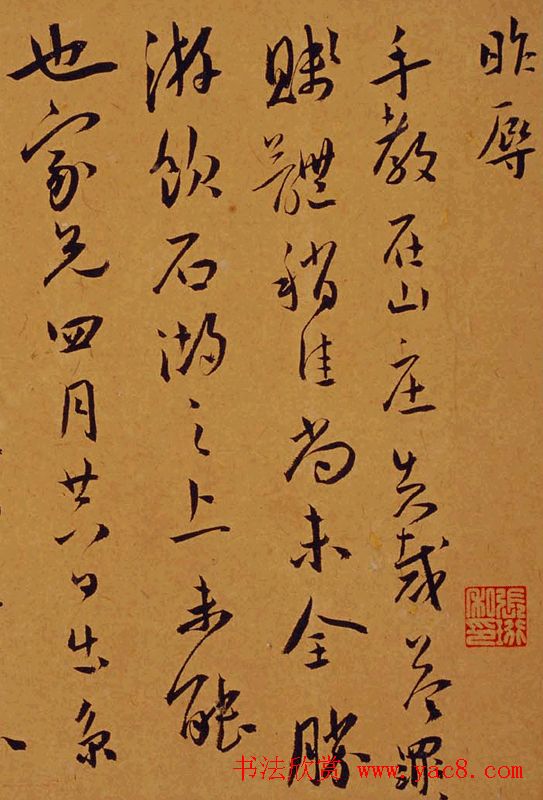 昨辱
手教在山庄失裁答罪
賤體稍佳尚未全勝
游飲石湖之上未能
也家兄四月廿八日出京
書法欣赏 www.yac8.com